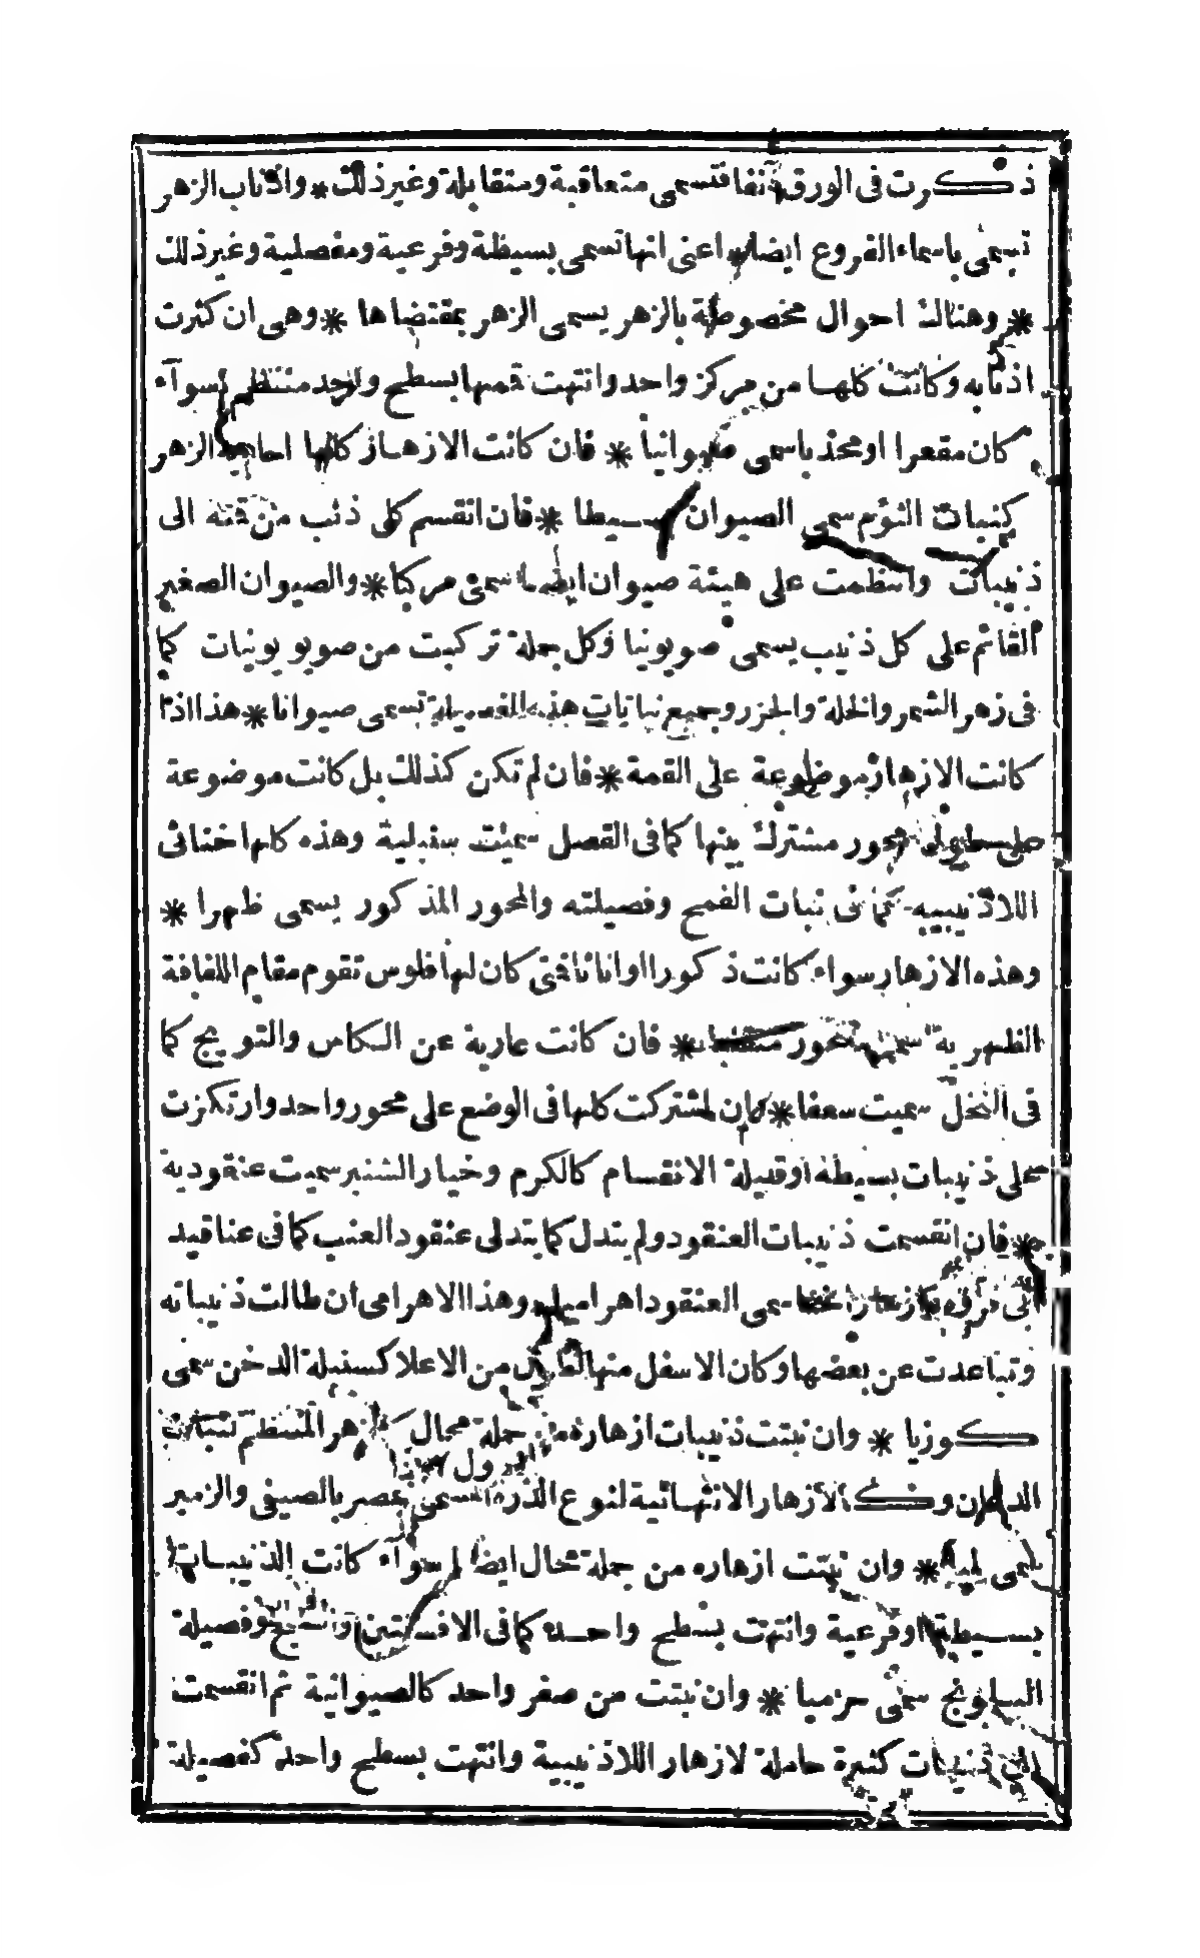 ذكرت فى الورق آنفا فتسمى متعاقبة ومتقابلة وغير ذلك * واذناب الزهر
تسمى باسماء الفروع ايضا * اعنى انها تسمى بسيطة وفرعية ومفصلية وغير ذلك
* وهنالك احوال مخصوصة بالزهر يسمى الزهر بمقتضاها * وهى ان كثرت
اذنابه وكانت كلها من مركز واحد وانتهت قمها بسطح واحد منتظم سوآء
كان مقعرا او محذ باسمى صيوانيا * فان كانت الازهار كلها احادية الزهر
كنبات الثوم سمى الصيوان بسيطا * فان انقسم كل ذئب من قمته الى
ذنيبات وانتظمت على هيئة صيوان ايضا سمى مركبا * والصيوان الصغير
القائم على كل ذنيب يسمى صويونيا وكل جملة تركبت من صويو يونيات كما
فى زهر الشمر والخلة والجزر وجميع نباتات هذه الفصيلة تسمى صيوانا * هذا اذا
كانت الازهار موضوعة على القمة * فان لم تكن كذلك بل كانت موضوعة
على طول محور مشترك بينها كما فى القصل سميت سنبلية وهذه كلها خناثى
اللاذنيبيه كما فى نبات القمح وفصيلته والمحور المذكور يسمى ظهرا *
وهذه الازهار سواء كانت ذكورا او اناثا فتى كان لها فلوس تقوم مقام اللفافة
الظهرية سميت محور * فان كانت عارية عن الكاس والتويج كما
فى النخل سميت سعفا * فان اشتركت كلها فى الوضع على محور واحد وارتكزت
على ذنيبات بسيطة او قليلة الانقسام كالكرم وخيار الشنبر سميت عنقودية
* فان انقسمت ذنيبات العنقود ولم يتدل كما يتدلى عنقود العنب كما فى عناقيد
سمى العنقود اهراميا * وهذا الاهرامى ان طالت ذنيباته
وتباعدت عن بعضها وكان الاسفل منها اطول من الاعلا كسنبلة الدخن سمى
كوزيا * وان نبتت ذنيبات ازهاره من جملة محال كالزهر المنتظم لنبات
الدخان وكالازهار الانتهائية لنوع الذرة المسمى بمصر بالصيفى والزمير
سمى لميا * وان نبتت ازهاره من جملة محال ايضا سوآء كانت الذنيبات
بسيطة او فرعية وانتهت بسطح واحد كما فى الافسنتين وفصيلة
البابونج سمى حزميا * وان نبتت من صفر واحد كالصيوانية ثم انقسمت
الى ذنيبات كثيرة حاملة لازهار اللاذنيبية وانتهت بسطح واحد كفصيلة